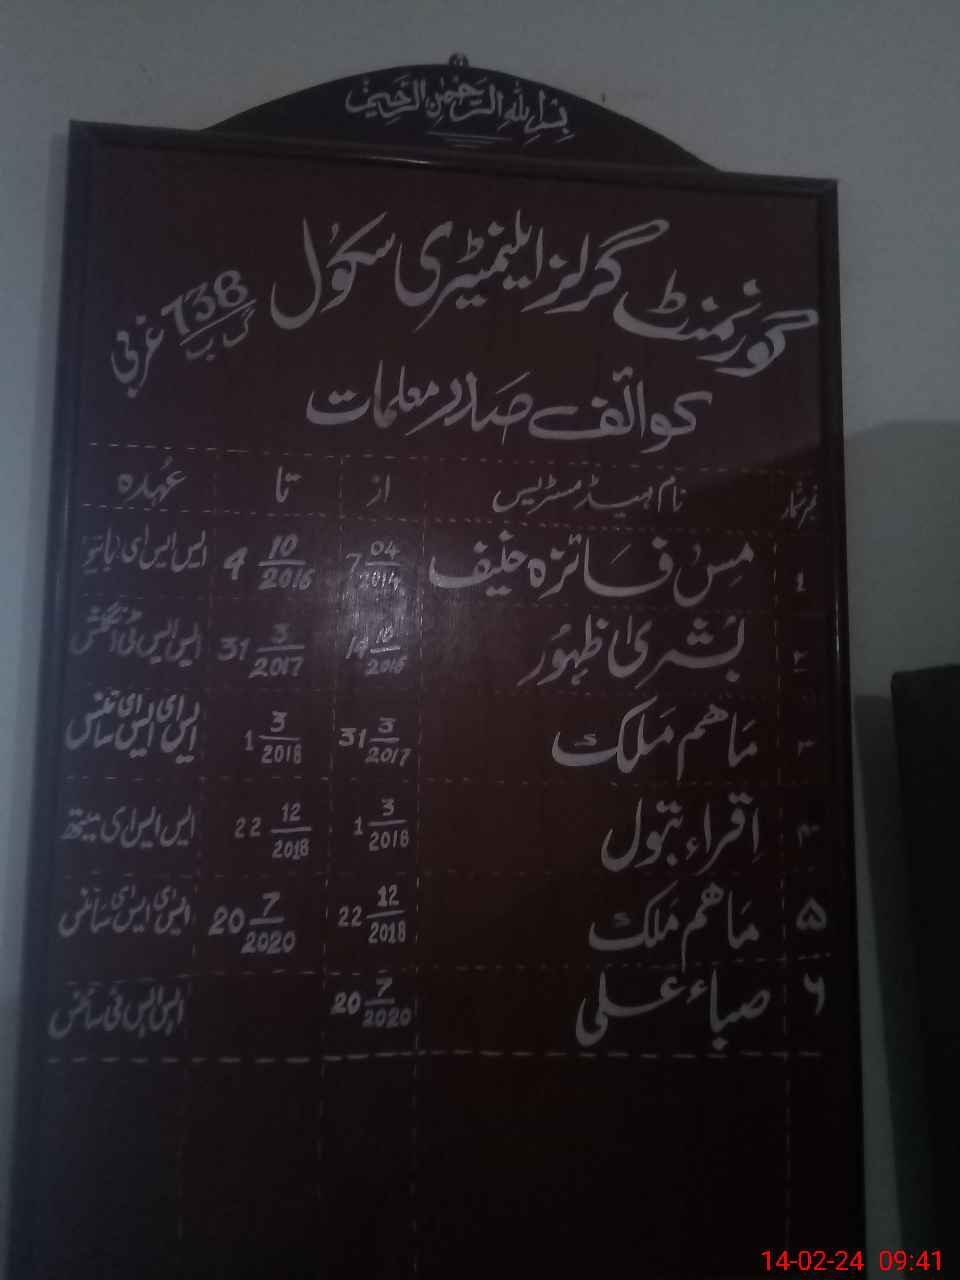 بسم اللہ الرحمٰن الرحیم
گورنمنٹ گرلز ایلیمنٹری سکول 138 گ ب غربی
کوائف صدر معلمات
نمبر شمار نام ہیڈ مسٹریس از تا عہدہ
۱ مس فائزہ حنیف 7 04/2014 4 10/2016 ایس ایس ای
۲ بشریٰ ظہور 14 10/2016 31 3/2017 ایس ایس ٹی
۳ ماھم ملک 31 3/2017 1 3/2018 ایس ای ایس ای سائنس
۴ اقراء بتول 1 3/2018 22 12/2018 ایس ایس ای میتھ
۵ ماھم ملک 22 12/2018 20 7/2020 ایس ای ایس ای سائنس
۶ صباء علی 20 7/2020 ایس ایس ٹی سائنس
14-02-24 09:41